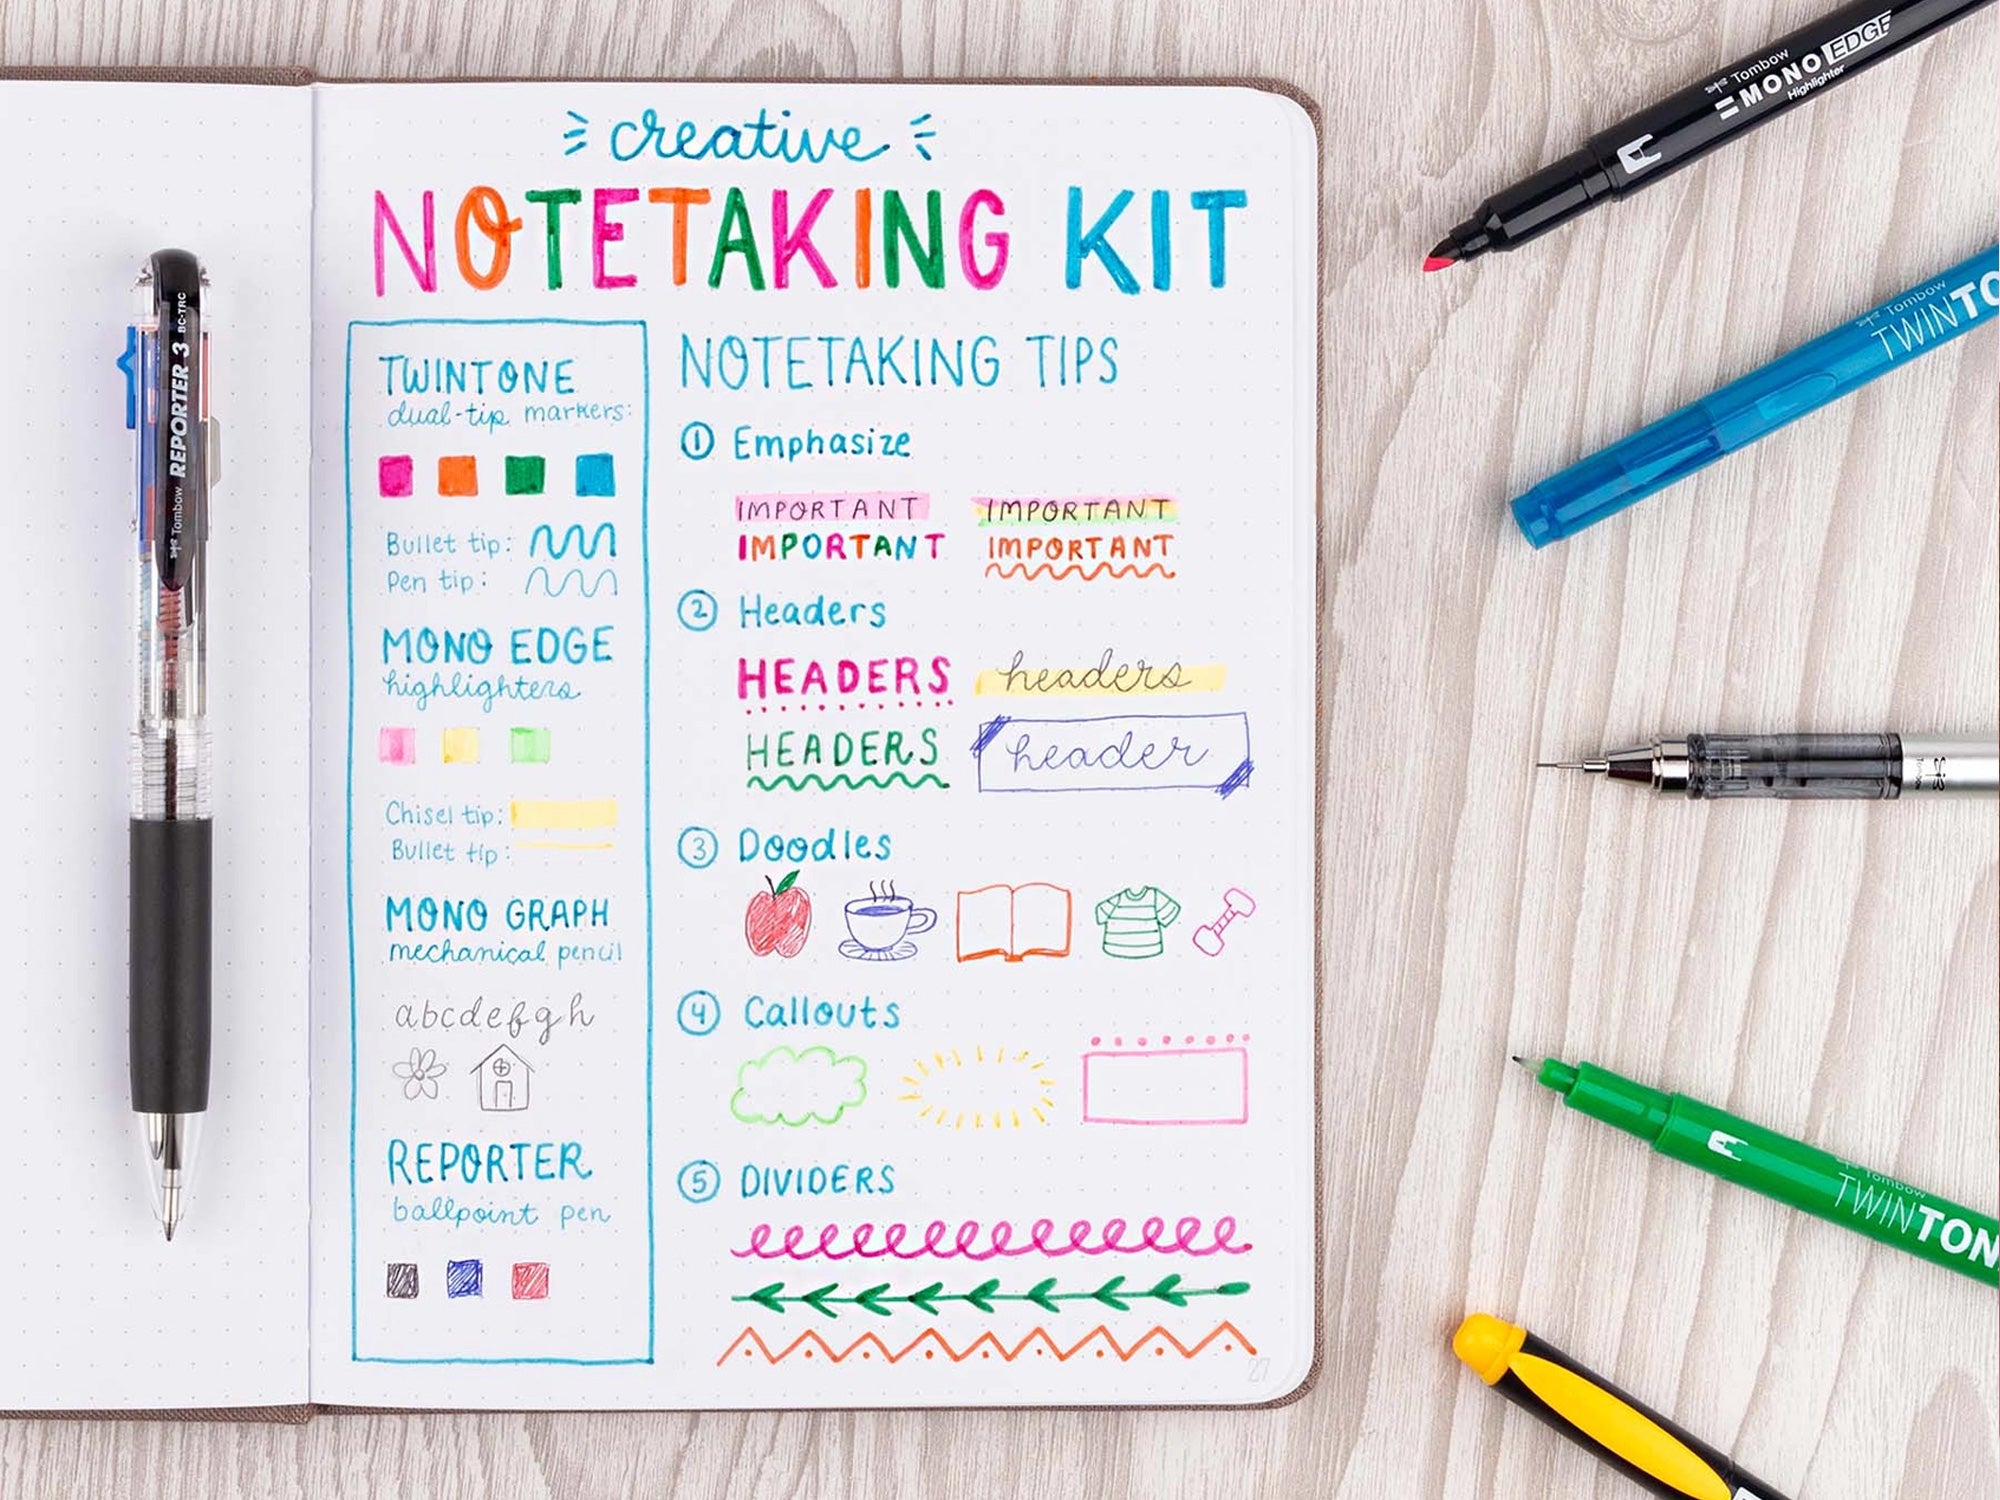 creative
NOTETAKING KIT
TWINTONE
dual-tip markers:
Bullet tip:
Pen tip:
MONO EDGE
highlighters
Chisel tip:
Bullet tip:
MONO GRAPH
mechanical pencil
abcdefgh
REPORTER
ballpoint pen
NOTETAKING TIPS
1 Emphasize
IMPORTANT IMPORTANT
IMPORTANT IMPORTANT
2 Headers
HEADERS headers
HEADERS header
3 Doodles
4 Callouts
5 DIVIDERS
27
Tombow REPORTER 3 BC-TRC
Tombow
MONO EDGE
Highlighter
Tombow
TWINTO
Tombow
Tombow
TWINTON